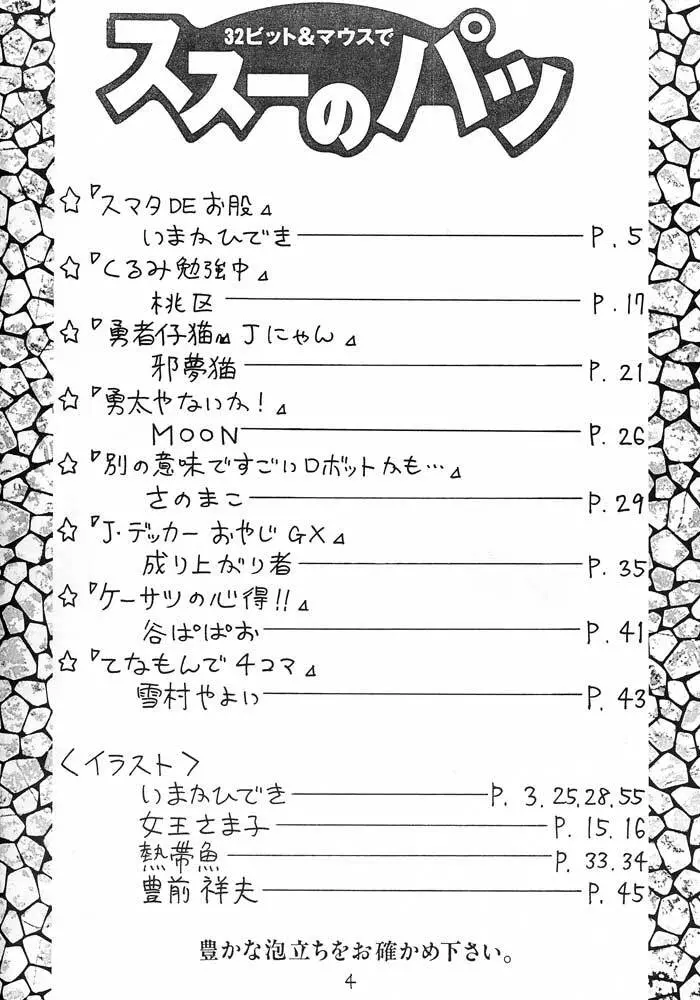 32ビット&マウスで
ススーのパッ
☆『スマタDEお股』
いまかひでき ― P. 5
☆『くるみ勉強中』
桃区 ― P. 17
☆『勇者仔猫 Jにゃん』
邪夢猫 ― P. 21
☆『勇太やないか!』
MOON ― P. 26
☆『別の意味ですごいロボットかも…』
さのまこ ― P. 29
☆『J・デッカー おやじGX』
成り上がり者 ― P. 35
☆『ケーサツの心得!!』
谷ぱぱお ― P. 41
☆『てなもんで4コマ』
雪村やよい ― P. 43
〈イラスト〉
いまかひでき ― P. 3,25,28,55
女王さま子 ― P. 15,16
熱帯魚 ― P. 33,34
豊前 祥夫 ― P. 45
豊かな泡立ちをお確かめ下さい。
4